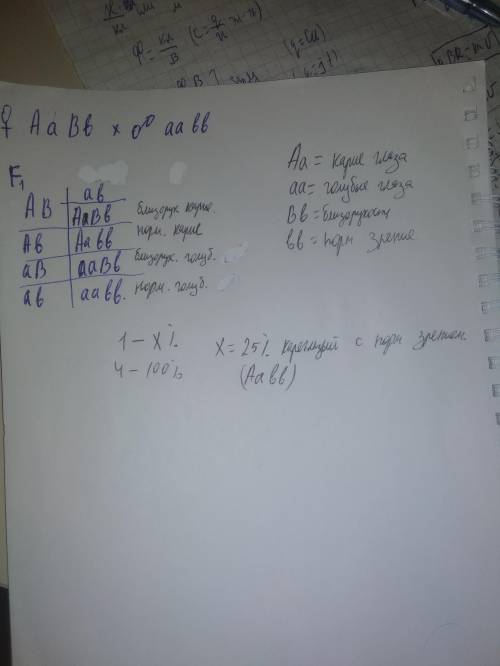 ♀ АаВв × ♂ аавв
F₁
ав
АВ АаВв близорук. карие.
Ав Аавв норм. карие
аВ ааВв близорук. голуб.
ав аавв. норм. голуб.
Аа = карие глаза
аа = голубые глаза
Вв = близорукость
вв = норм зрение
1 – х%
4 – 100%
х = 25% кареглазый с норм зрением
(Аавв)